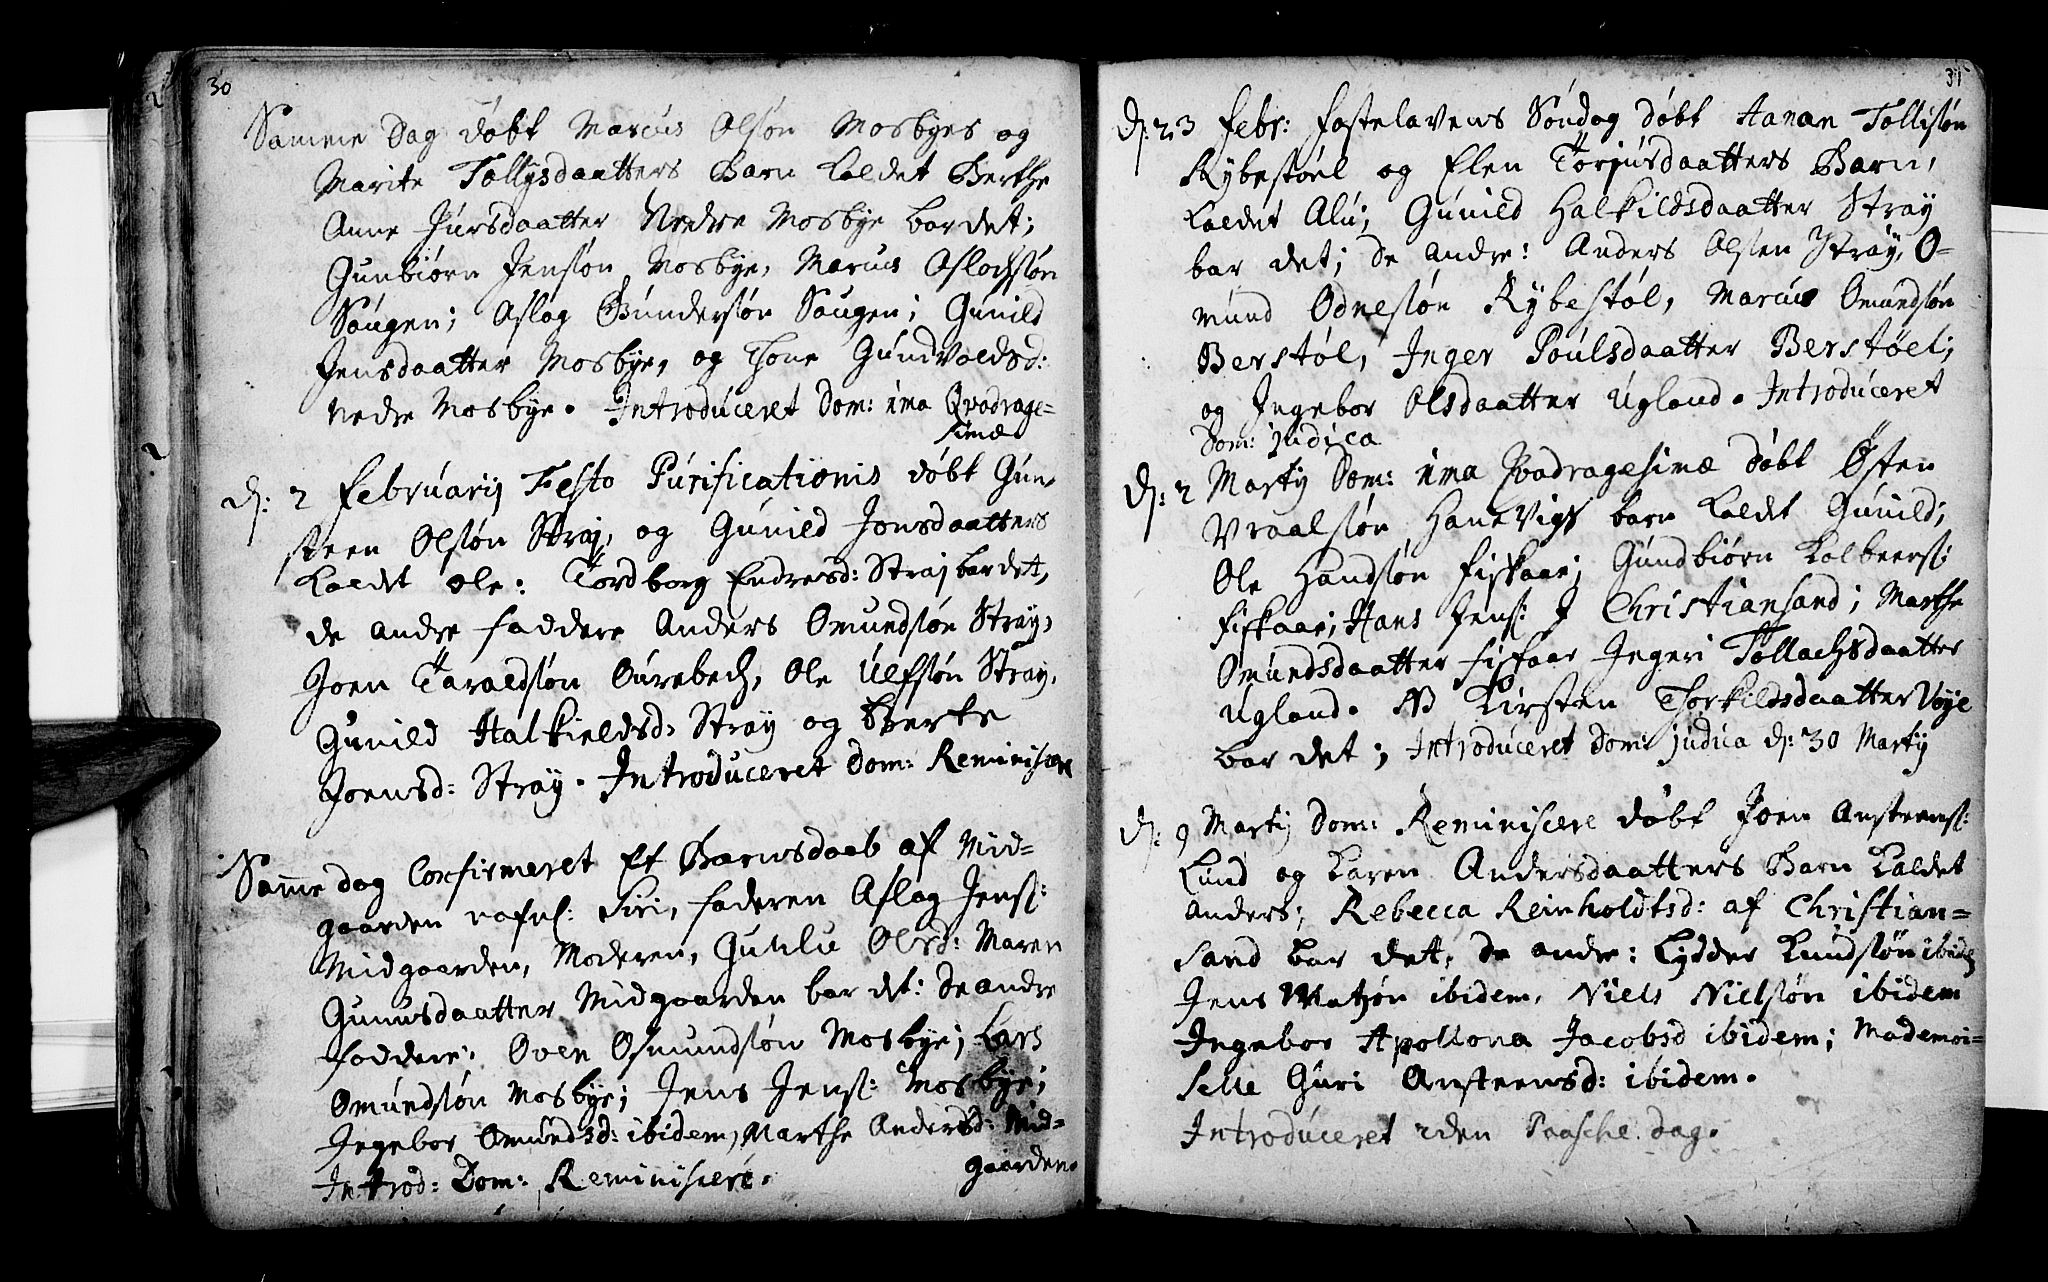 30
Samme Dag døbt Marcus Olsøn Mosbyes og
Marite Tollysdaatters Barn Kaldet Berthe
Anne Jursdaatter Nedre Mosbye bar det;
Gunbiørn Jensøn Mosbye, Marcus Aslachsøn
Saugen; Aslag Gundersøn Saugen; Gunild
Jensdaatter Mosbye, og Thone Gundvoldsd:
nedre Mosbye. Introduceret Dom: 1ma Qvadrage=
simæ
d: 2 Februarij Festo Purificationis døbt Gun-
steen Olsøn Straj, og Gunild Jonsdaatters
Kaldet Ole: Tordborg Endresd: Straj bar dett,
de andre faddere Anders Omundsøn Straj,
Joen Taraldsøn Aurebech, Ole Ulfsøn Straj,
Gunild Halkieldsd: Straj og Berte
Joensd: Straj. Introduceret Dom: Reminiscere
Samme dag Confirmeret Et Barnsdaab af Mid=
gaarden nafnl: Siri, faderen Aslag Jens:
Midgaarden, Moderen, Gunlu Olsd: Maren
Gunusdaatter Midgaarden bar det: De andre
faddere: Oven Osmundsøn Mosbye; Lars
Omundsøn Mosbye; Jens Jens: Mosbye;
Ingebor Omundsd: ibidem, Marthe Andersd: Mid=
gaarden.
Introd: Dom: Reminiscere.
31
d: 23 Febr: Fastelavens Søndag døbt Aanan Tollisøn
Rybestøel og Elen Torjusdaatters Barn,
Kaldet Alu; Gunild Halkildsdaatter Straj
bar det; de andre: Anders Olsen Straj, O=
mund Odnesøn Rybestøl, Marcus Omundsøn
Berstøl, Inger Poulsdaatter Berstøel;
og Ingebor Olsdaatter Ugland. Introduceret
Dom: judica
d: 2 Martij Dom: 1ma Qvadragesimæ døbt Østen
Vraalsøn Hanevigs barn Kaldet Gunild;
Ole Handsøn Fiskaae; Gundbiørn Kolbeens:
Fiskaae; Hans Jens: I Christiansand; Marthe
Omundsdaatter Fiskaae Ingeri Tollachsdaatter
Ugland. NB Kirsten Thorkildsdaatter Vøye
bar det; Introduceret Dom: judica d: 30 Martij
d: 9 Martij Dom: Reminiscere døbt Joen Ansteens:
Lund og Karen Andersdaatters Barn Kaldet
Anders; Rebecca Reinholdtsd: af Christian=
sand bar dett, de andre: Lydder Knudsøn ibidem
Jens Matzøn ibidem, Niels Nielsøn ibidem
Ingebor Apollona Jacobsd ibidem; Mademoi=
selle Guri Ansteensd: ibidem.
Introduceret 2den Paasche dag.